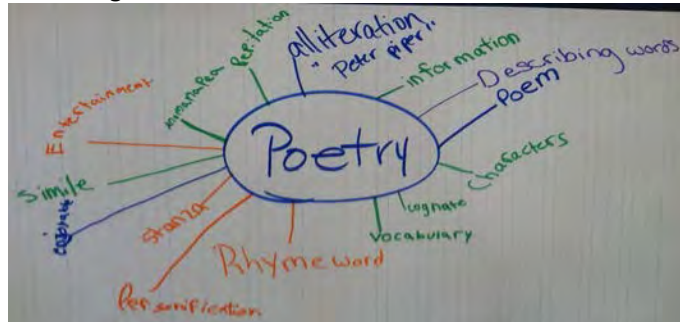 Poetry
alliteration
"Peter piper"
information
Describing words
Poem
Characters
cognate
vocabulary
Rhyme word
Personification
Stanza
Simile
Entertainment